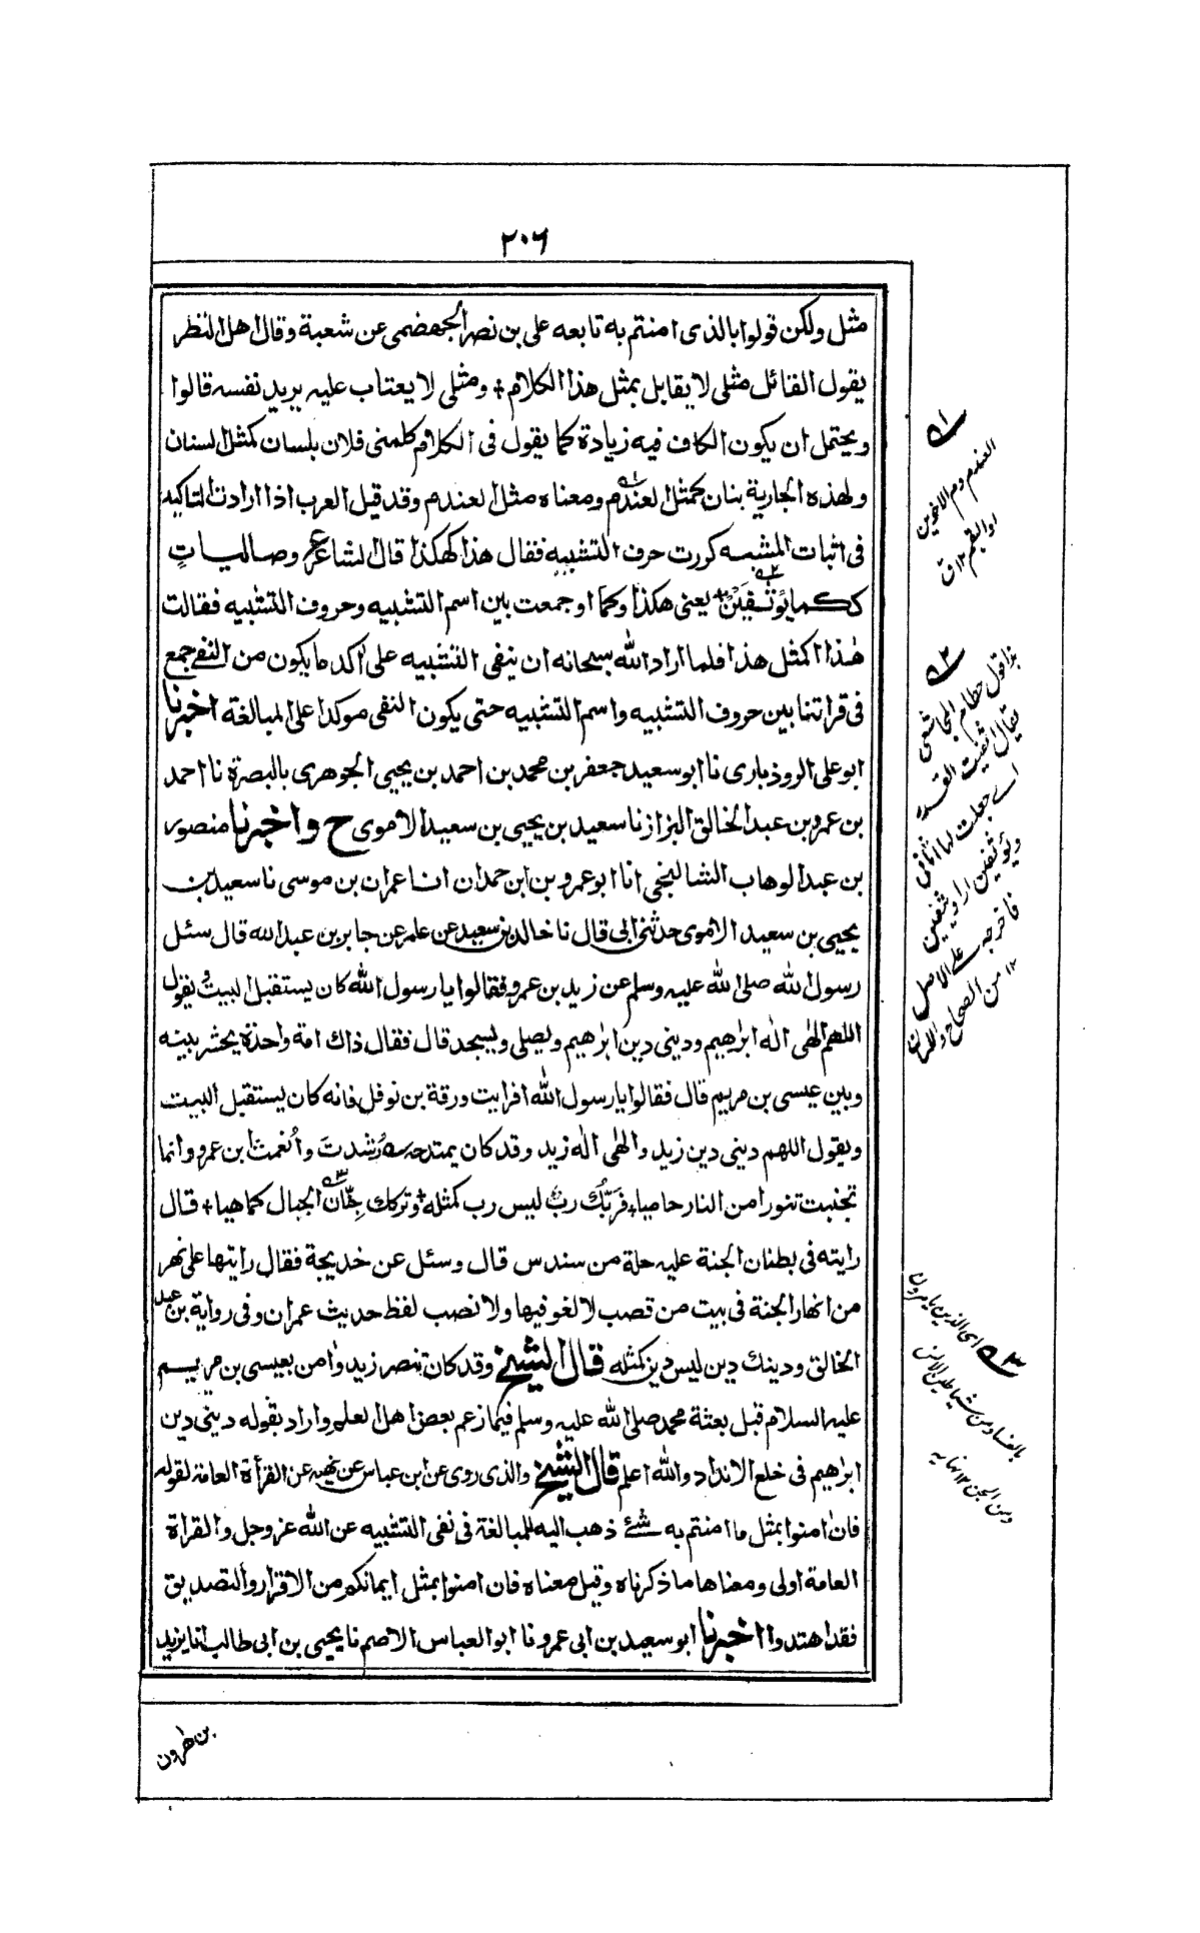 ٢٠٦
مثل ولكن قولوا بالذى امنتم به تابعه على بن نصر الجهضمى عن شعبة وقال اهل النظر
يقول القائل مثلى لا يقابل بمثل هذا الكلام + ومثلى لا يعتاب عليه يريد نفسه قالوا
ويحتمل ان يكون الكاف فيه زيادة كما يقول فى الكلام كلمنى فلان بلسان كمثل لسنان
ولهذه الجارية بنان كمثل لعندم ومعناه مثل العندم وقد قيل العرب اذا ارادت التاكيد
فى اثبات المشبه كررت حرف التشبيه فقال هذا كهكذا قال الشاعر ع وصاليات
ككما يؤثفين يعنى هكذا وكما او جمعت بين اسم التشبيه وحروف التشبيه فقالت
هذا كمثل هذا فلما اراد الله سبحانه ان ينفى التشبيه على آكد ما يكون من النفى جمع
فى قراتنا بين حروف التشبيه واسم التشبيه حتى يكون النفى موكدا على المبالغة اخبرنا
ابو على الروذبارى نا ابو سعيد جعفر بن محمد بن احمد بن يحيى الجوهرى بالبصرة نا احمد
بن عمرو بن عبد الخالق البزاز نا سعيد بن يحيى بن سعيد الاموى ح واخبرنا منصور
بن عبد الوهاب الشالنجى انا ابو عمرو بن ابن حمدان انا عمران بن موسى نا سعيد بن
يحيى بن سعيد الاموى حدثنى ابى قال نا خالد بن سعيد عن عامر عن جابر بن عبد الله قال سئل
رسول الله صلى الله عليه وسلم عن زيد بن عمرو فقالوا يا رسول الله كان يستقبل البيت ويقول
اللهم الهى اله ابراهيم ودينى دين ابراهيم ويصلى ويسجد قال فقال ذاك امة واحدة يحشر بينه
وبين عيسى بن مريم قال فقالوا يا رسول الله افرايت ورقة بن نوفل فانه كان يستقبل البيت
ويقول اللهم دينى دين زيد والهى اله زيد وقد كان يمتدحه رشدت وأنعمت ابن عمرو وانما
تجنبت تنورا من النار حاميا + فربك رب ليس رب كمثله + وتركك جنان الجبال كما هيا + قال
رايته فى بطنان الجنة عليه حلة من سندس قال وسئل عن خديجة فقال رايتها على نهر
من انهار الجنة فى بيت من قصب لا لغو فيها ولا نصب لفظ حديث عمران وفى رواية بن عبد
الخالق ودينك دين ليس دين كمثله قال الشيخ وقد كان تنصر زيد وامن بعيسى بن مريم
عليه السلام قبل بعثة محمد صلى الله عليه وسلم فيما زعم بعض اهل العلم واراد بقوله دينى دين
ابراهيم فى خلع الانداد والله اعلم قال الشيخ والذى روى عن ابن عباس عن نهيه عن القرأة العامة لقوله
فان امنوا بمثل ما امنتم به شئ ذهب اليه للمبالغة فى نفى التشبيه عن الله عز وجل والقراة
العامة اولى ومعناها ما ذكرناه وقيل معناه فان امنوا بمثل ايمانكم من الاقرار والتصديق
فقد اهتدوا اخبرنا ابو سعيد بن ابى عمرو نا ابو العباس الاصم نا يحيى بن ابى طالب انا يزيد
بن هرون
١
العندم دم الاخوين
او البقم ١٢ ق
٢
هذا قول حطام المجاشعى
يقال اثفيت القدر
اے جعلت لها اثافى
ويؤثفين
فاخرجه على الاصل
١٢ من الصحاح
٣
اى الذين يامرون
بالفساد من شياطين الانس
ومن الجن ١٢ نهايه